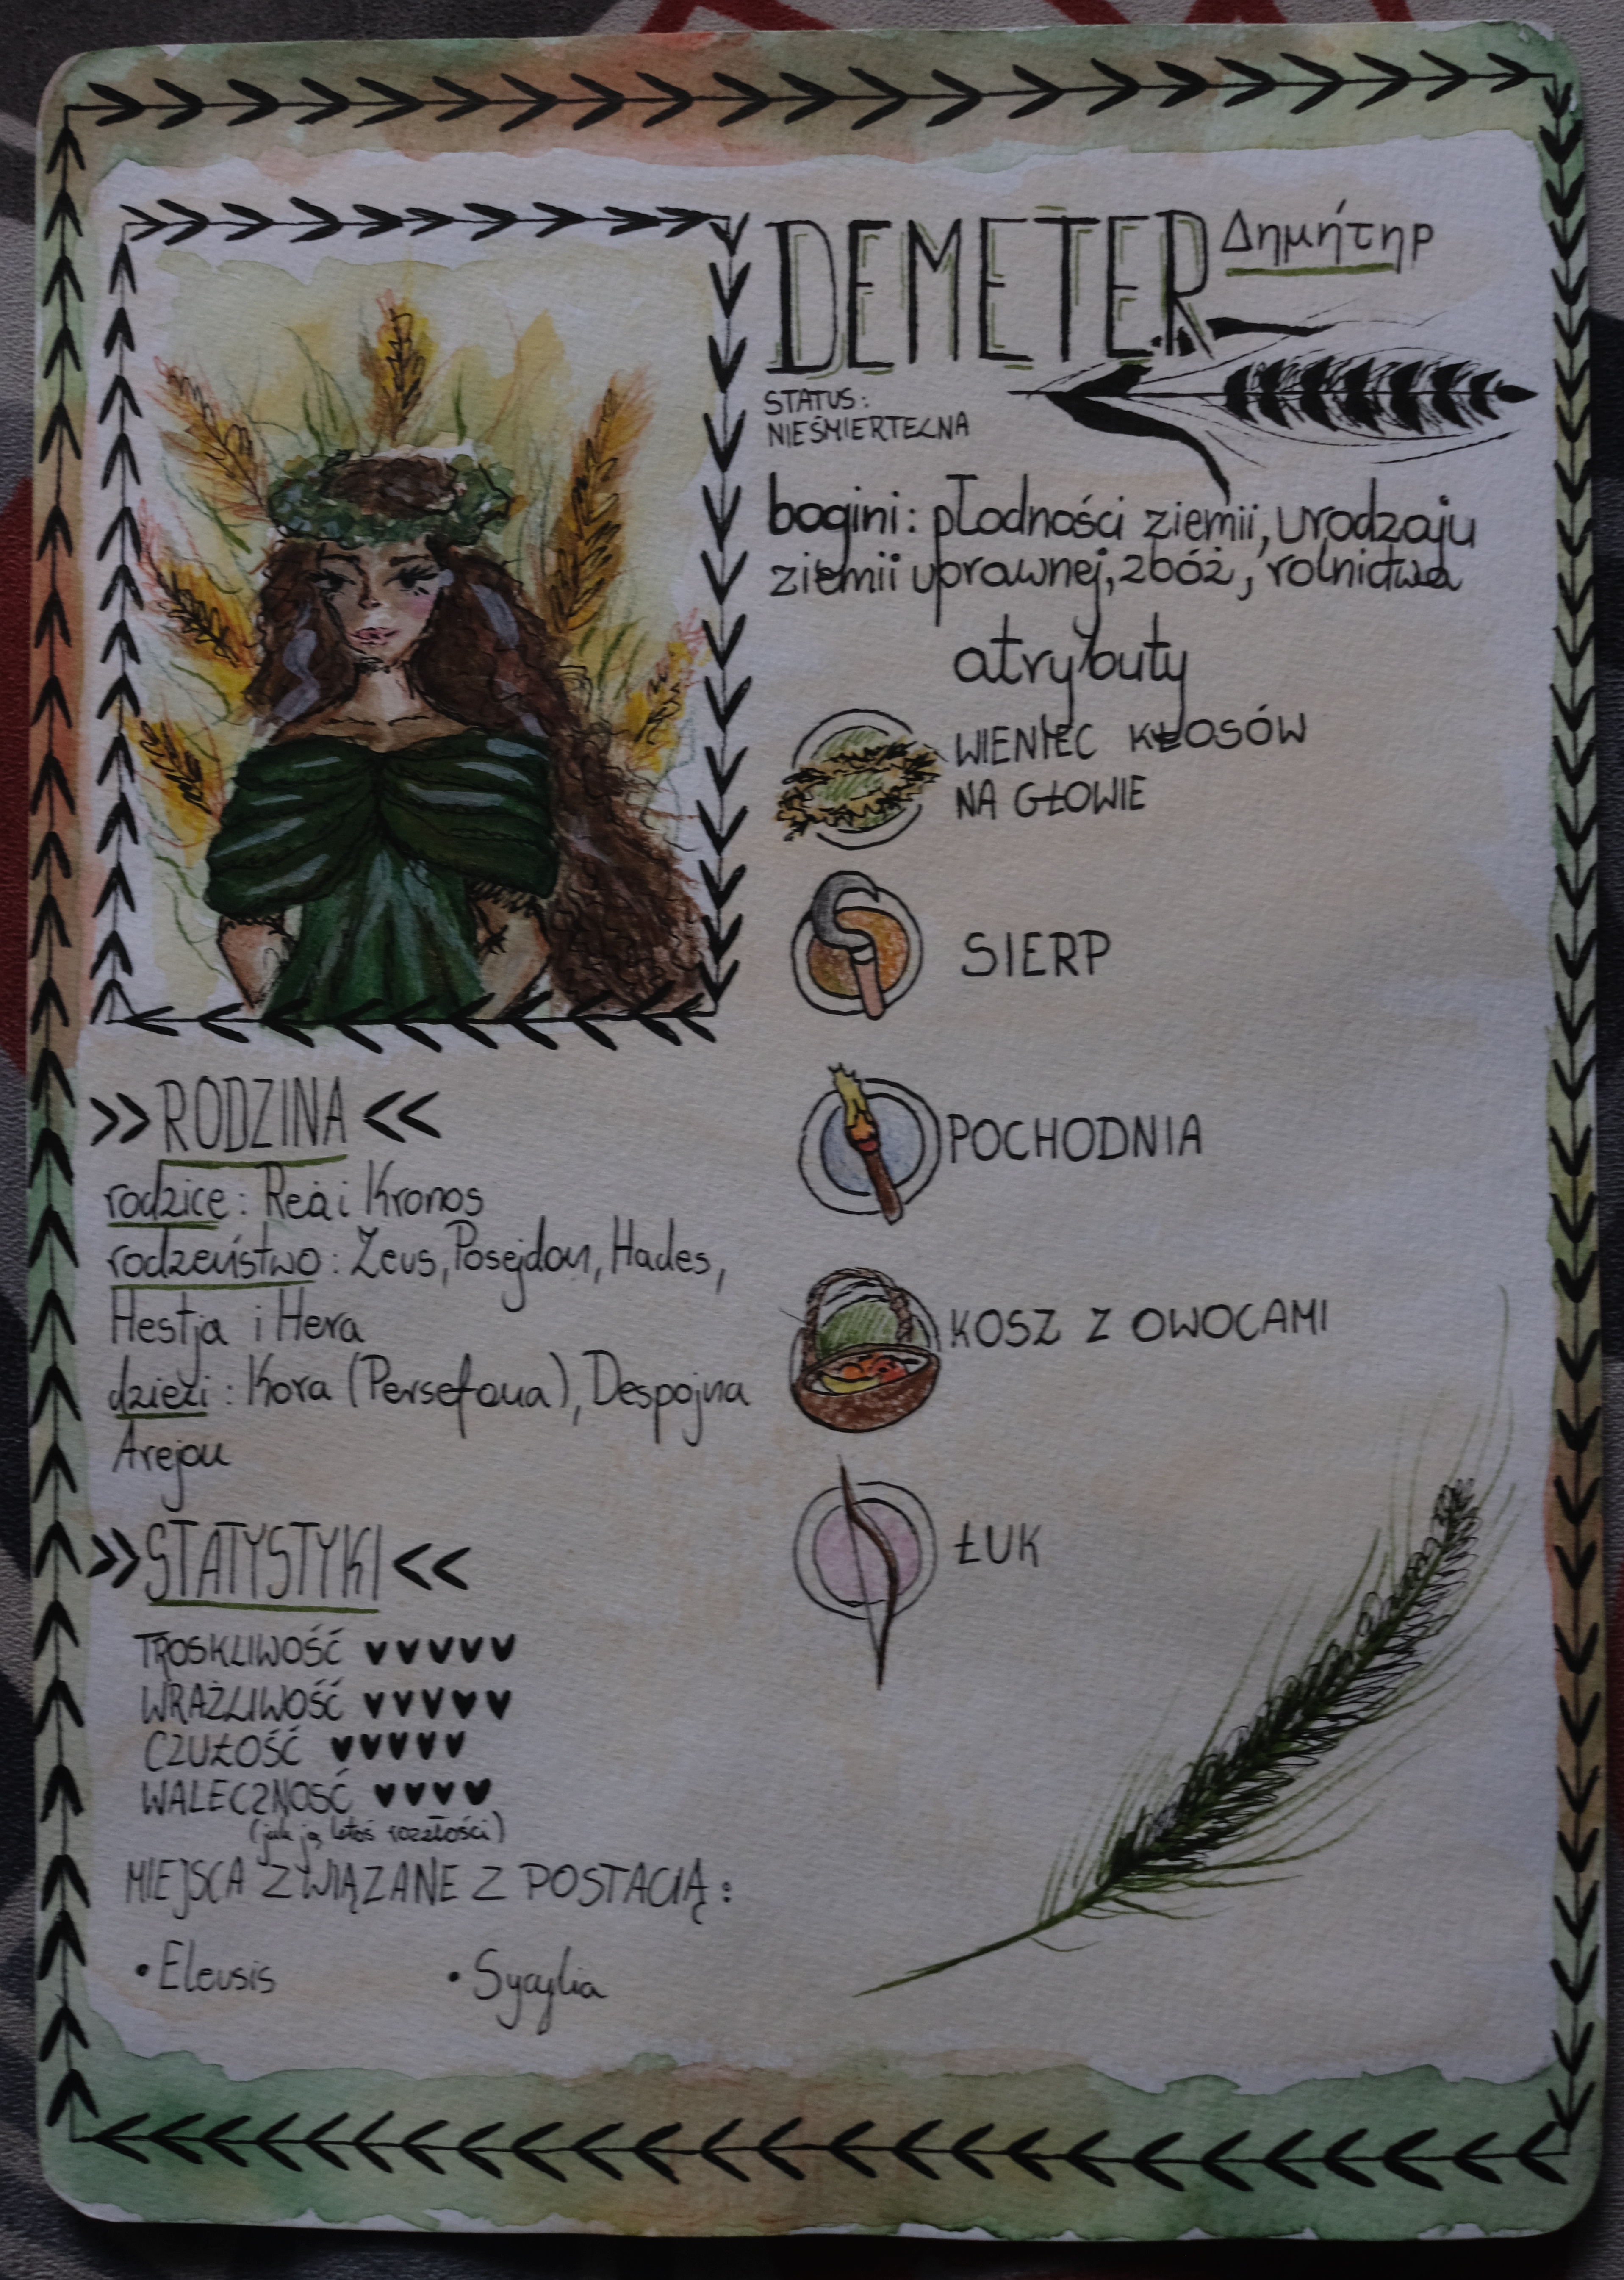 DEMETER Δημήτηρ
STATUS:
NIEŚMIERTELNA
bogini: płodności ziemii, urodzaju
ziemii uprawnej, zbóż, rolnictwa
atrybuty
WIENIEC KŁOSÓW
NA GŁOWIE
SIERP
POCHODNIA
KOSZ Z OWOCAMI
ŁUK
>> RODZINA <<
rodzice: Rea i Kronos
rodzeństwo: Zeus, Posejdon, Hades,
Hestja i Hera
dzieci: Kora (Persefona), Despojna
Arejon
>> STATYSTYKI <<
TROSKLIWOŚĆ ♥♥♥♥♥
WRAŻLIWOŚĆ ♥♥♥♥♥
CZUŁOŚĆ ♥♥♥♥♥
WALECZNOŚĆ ♥♥♥♥
(jak ją ktoś rozzłości)
MIEJSCA ZWIĄZANE Z POSTACIĄ:
• Eleusis • Sycylia